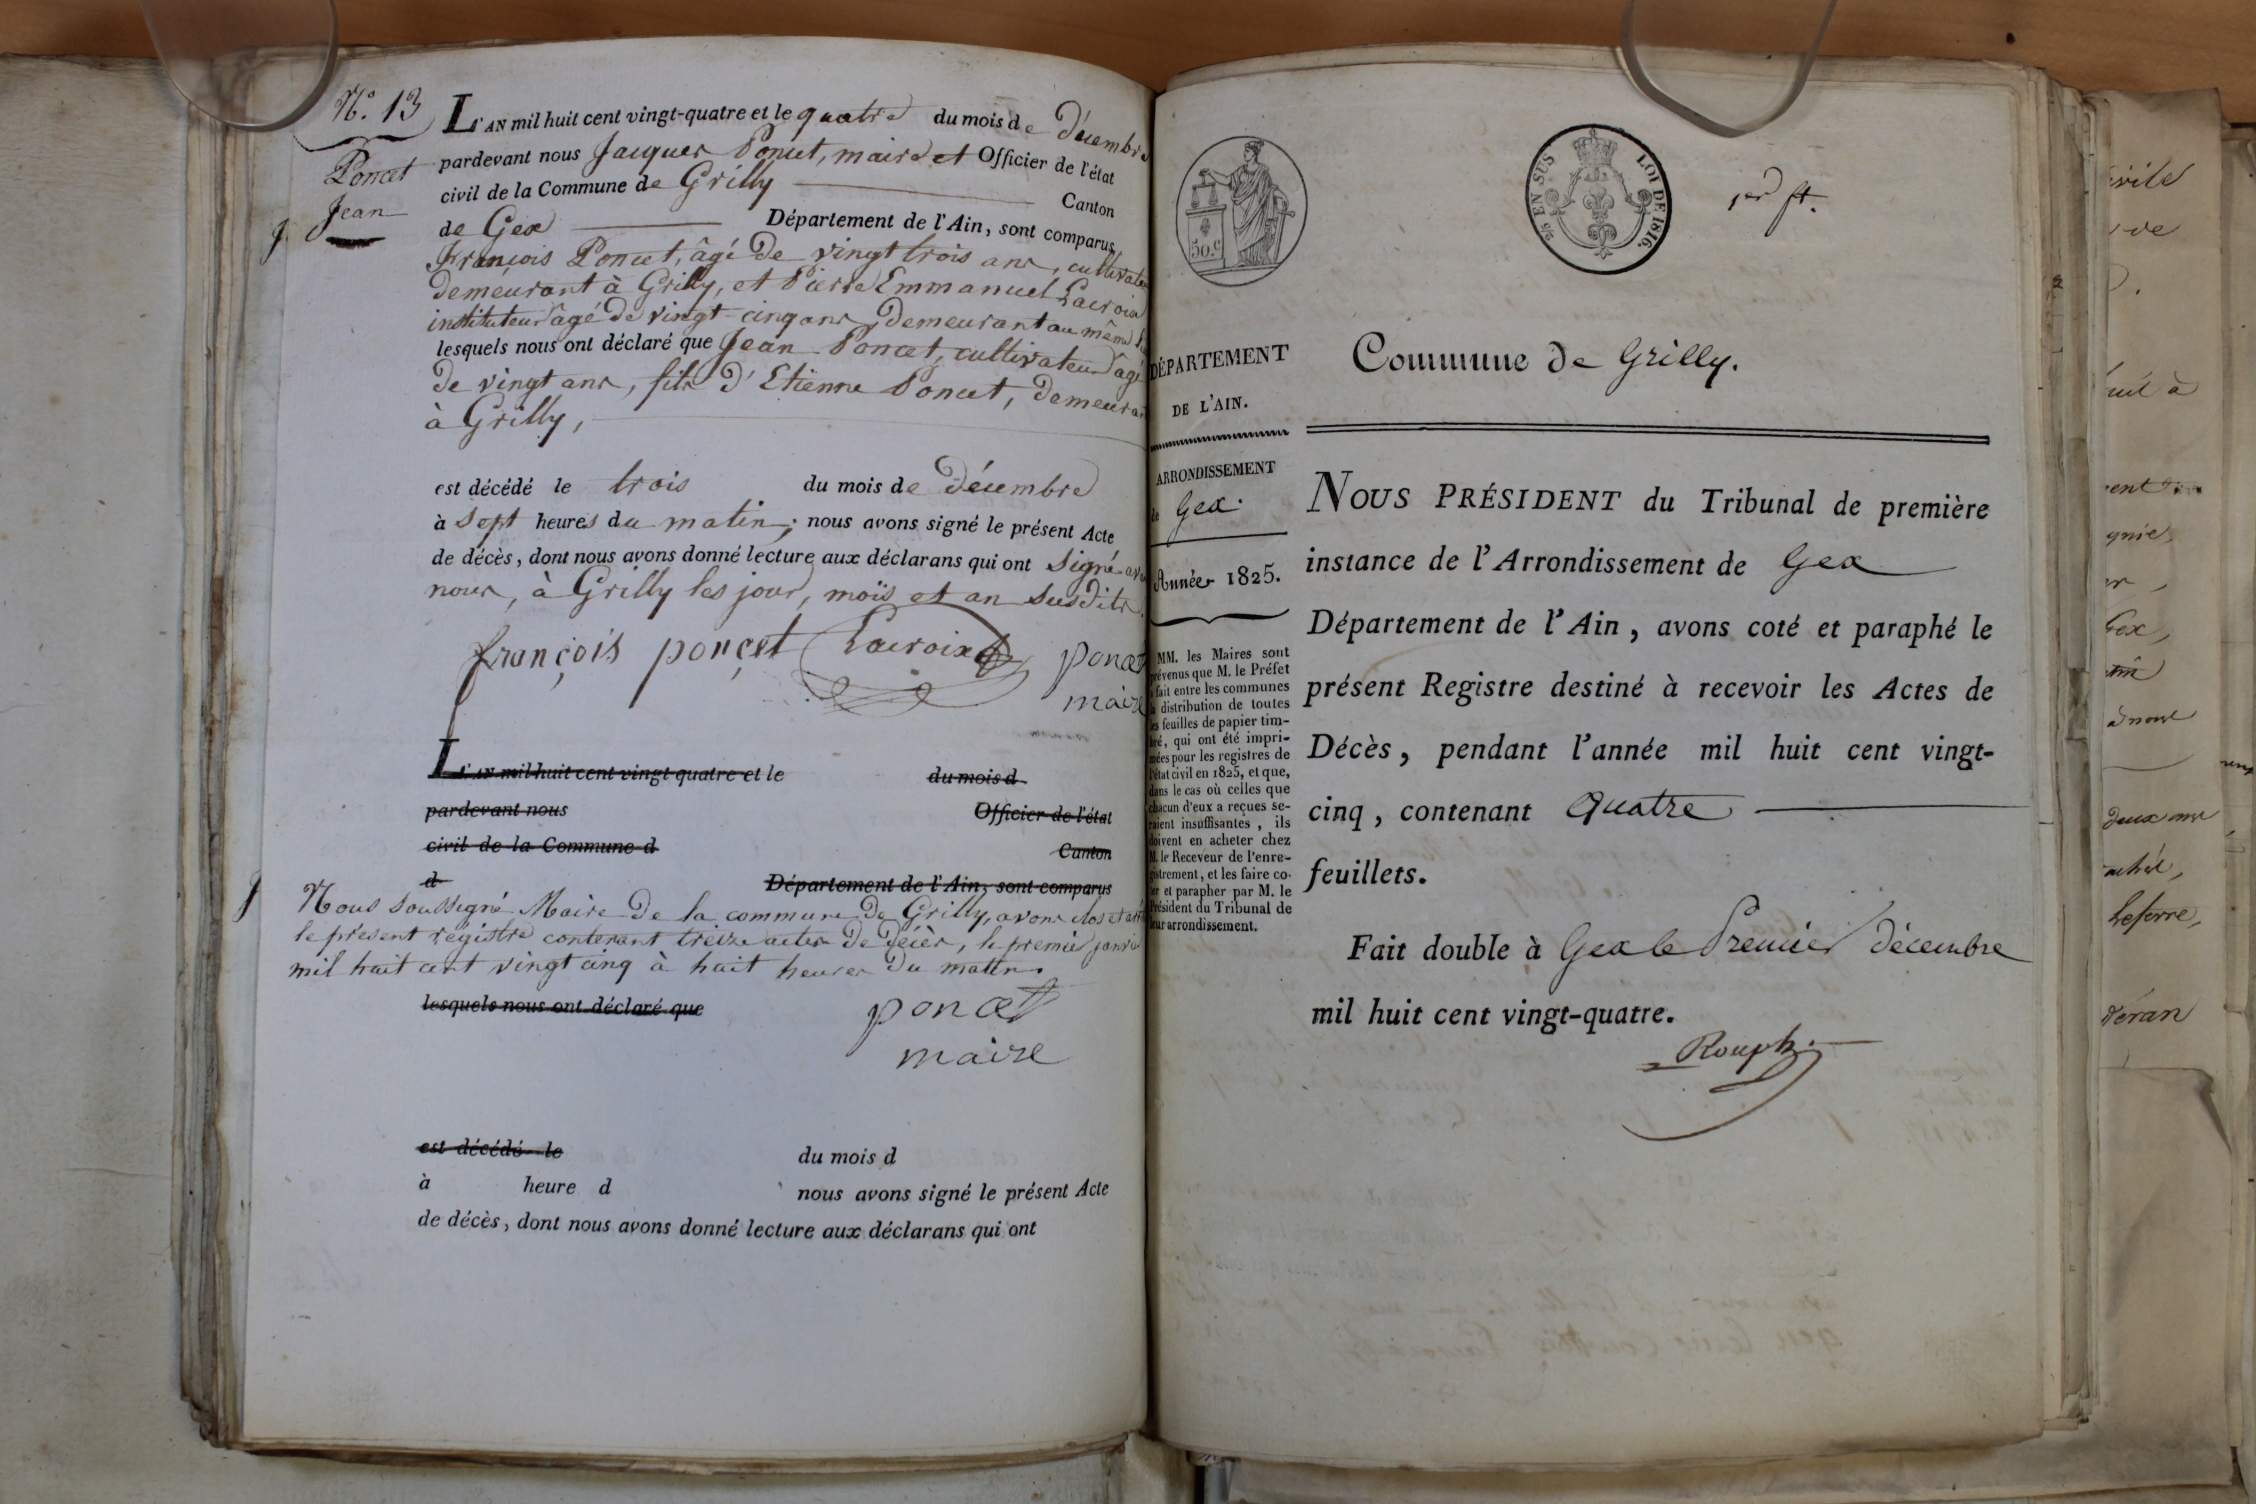 N.° 13
Poncet
Jean
L'AN mil huit cent vingt-quatre et le quatre du mois de Décembre
pardevant nous Jacques Poncet, maire et Officier de l'état
civil de la Commune de Grilly Canton
de Gex Département de l'Ain, sont comparus
François Poncet, âgé de vingt trois ans, cultivateur
demeurant à Grilly, et Pierre Emmanuel Lacroix
instituteur âgé de vingt-cinq ans, demeurant au même
lesquels nous ont déclaré que Jean Poncet, cultivateur âgé
de vingt ans, fils d'Etiënne Poncet, demeurant
à Grilly,
est décédé le trois du mois de Décembre
à Sept heures du matin; nous avons signé le présent Acte
de décès, dont nous avons donné lecture aux déclarans qui ont signé avec
nous, à Grilly les jour, moïs et an susdits.
françois ponçet Lacroix poncet
maire
L'AN mil huit cent vingt quatre et le du mois d
pardevant nous Officier de l'état
civil de la Commune d Canton
d Département de l'Ain, sont comparus
Nous soussigné Maire de la commune de Grilly, avons clos et
le présent régistre contenant treize actes de décès, le premier janvier
mil huit cent vingt cinq à huit heures du matin.
lesquels nous ont déclaré que
poncet
maire
est décédé le du mois d
à heure d nous avons signé le présent Acte
de décès, dont nous avons donné lecture aux déclarans qui ont
50.c
2/5 EN SUS LOI DE 1816.
1er ft.
DÉPARTEMENT
DE L'AIN.
ARRONDISSEMENT
de Gex.
Année 1825.
MM. les Maires sont
prévenus que M. le Préfet
a fait entre les communes
la distribution de toutes
les feuilles de papier tim-
bré, qui ont été impri-
mées pour les registres de
l'état civil en 1825, et que,
dans le cas où celles que
chacun d'eux a reçues se-
raient insuffisantes, ils
doivent en acheter chez
M. le Receveur de l'enre-
gistrement, et les faire co-
ter et parapher par M. le
Président du Tribunal de
leur arrondissement.
Commune de Grilly.
NOUS PRÉSIDENT du Tribunal de première
instance de l'Arrondissement de Gex
Département de l'Ain, avons coté et paraphé le
présent Registre destiné à recevoir les Actes de
Décès, pendant l'année mil huit cent vingt-
cinq, contenant Quatre
feuillets.
Fait double à Gex le Premier décembre
mil huit cent vingt-quatre.
Rouph.